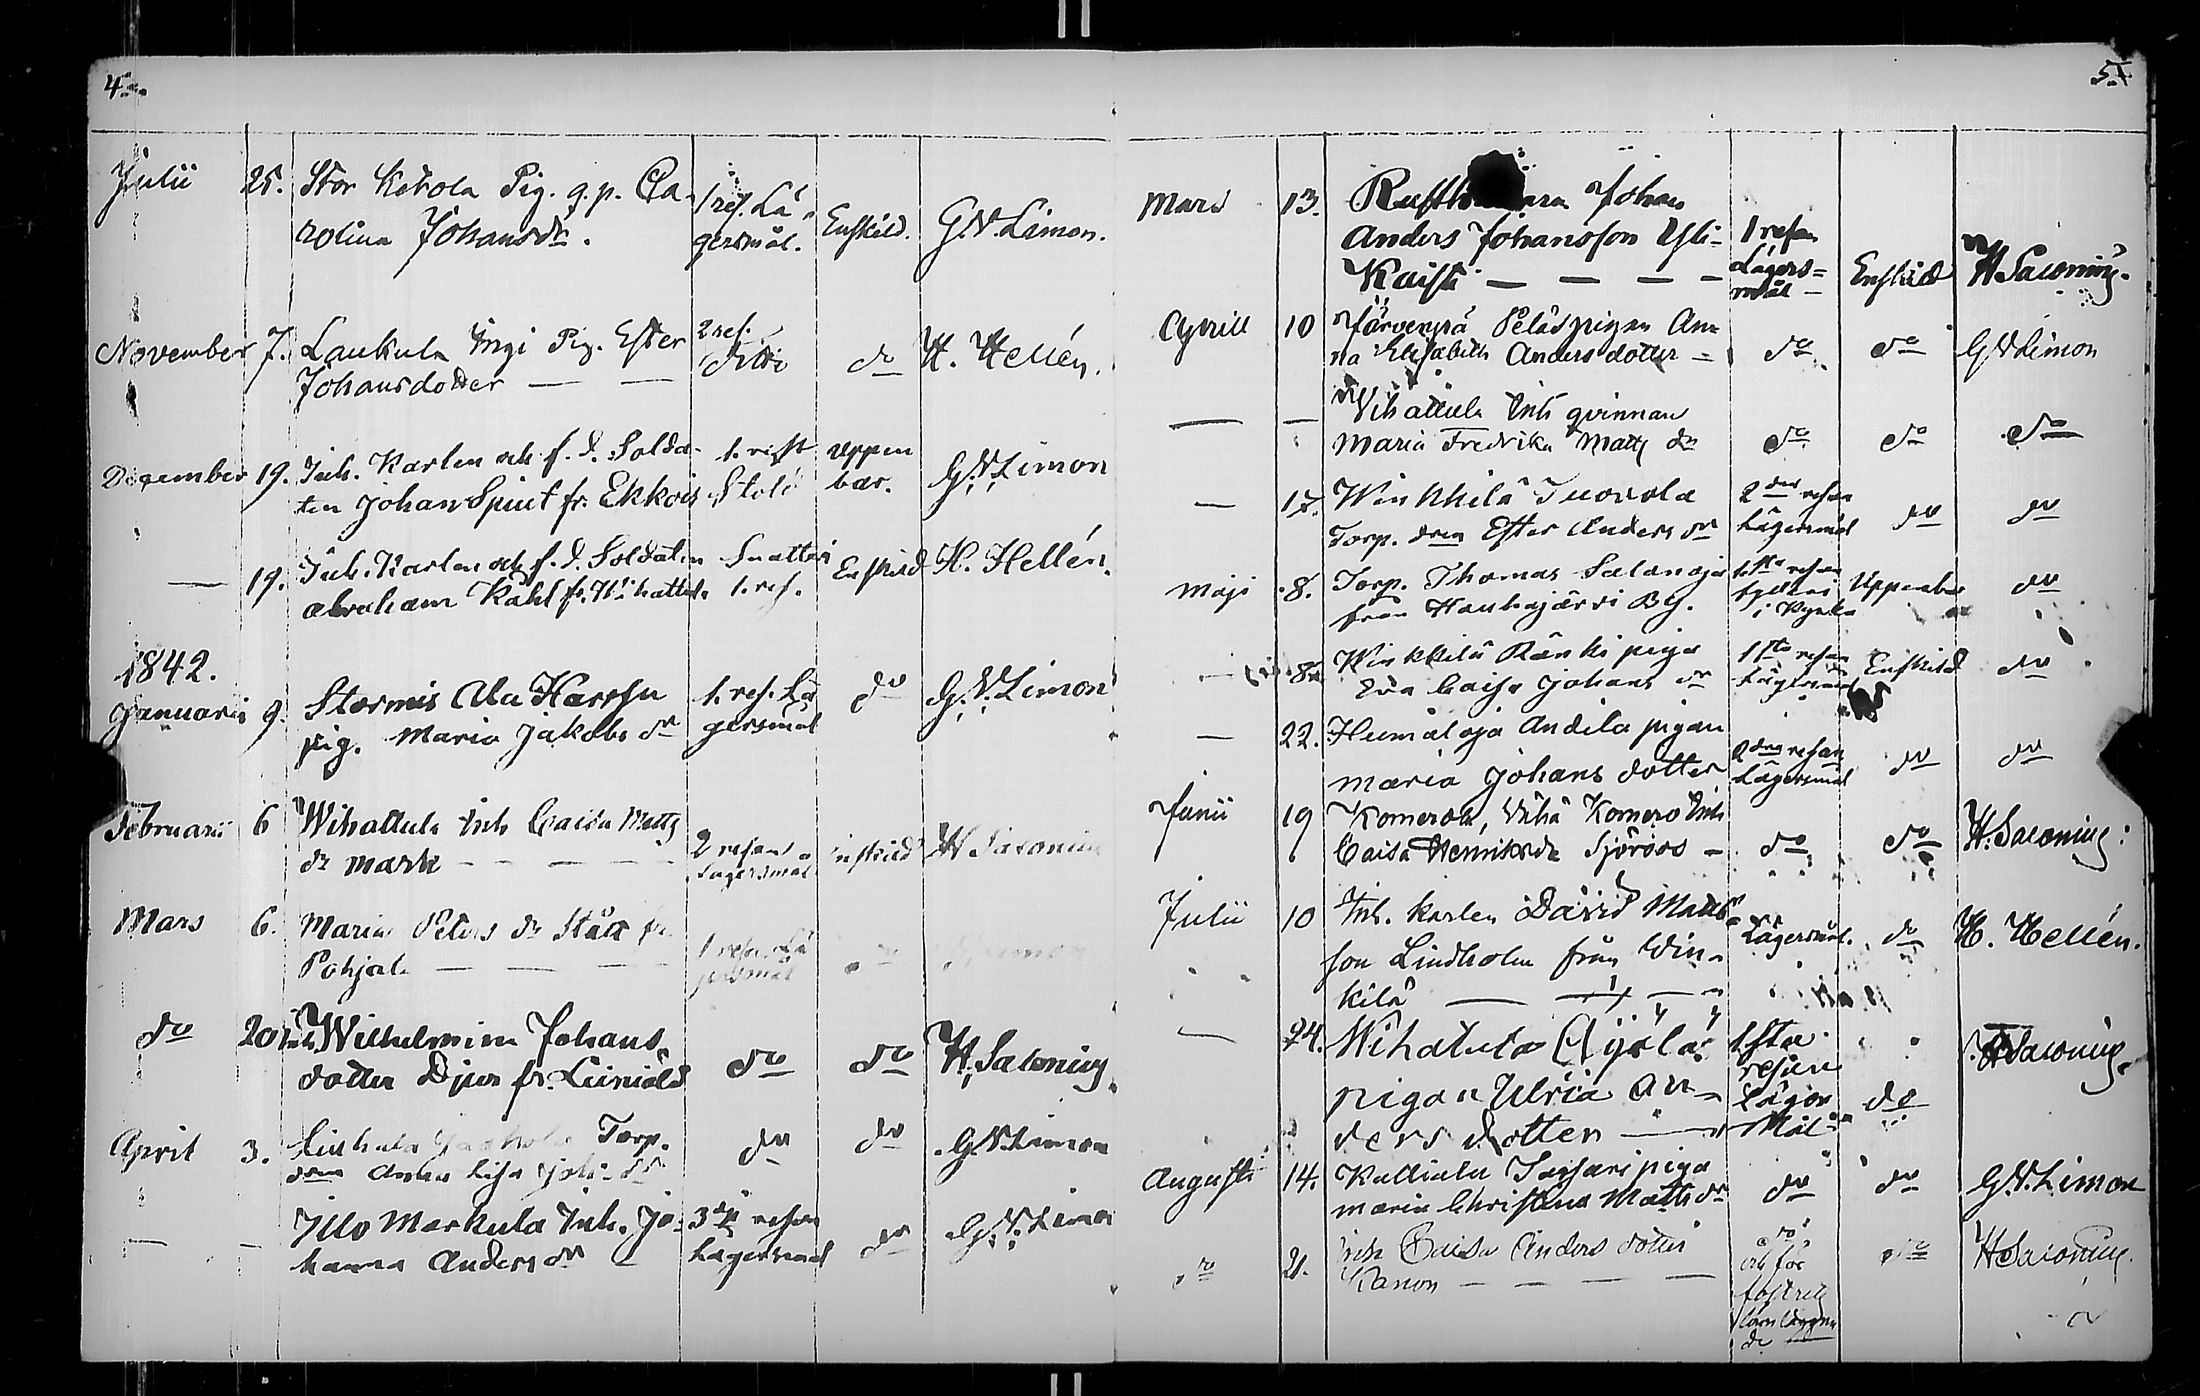 4.
Julii 25. Stor Ketola Pig. g.p. Ca-
rolina Johansdr.
1 res. Lä-
gersmål.
Enskild.
G.W.Limon.
November 7. Laukula Ingi Pig. Ester
Johansdotter — —
2 res.
ditto
do
H. Hellén.
December 19. Inh. Karlen och f. d. Solda-
ten Johan Spint fr. Ekkois
1. resp
Stöld
Uppen
bar.
G.W.Limon
— 19. Inh. Karlen och f. d. Soldaten
Abraham Kahl fr. Wihattula
Snatteri
1. res.
Enskild
H. Hellén.
1842.
Januarii 9. Stormis Ala Harrsu
pig. Maria Jakobs dr
1. res. Lä
gersmål
do
G.W.Limon
Februarii 6 Wihattula Inh Caisa Matts
dr Mark — — — —
2 resans
Lägersmål
Enskild
H Saxonius
Mars 6. Maria Peters dr Stått fr.
Pohjala — — —
1 resan Lä
gersmål
do 20 Inh Wilhelmina Johans
dotter Djur fr.
do
do
H. Saxonius
April 3. Torp.
dren Anna Lisa Joh. dr
do
do
G.W.Limon
— — Illo Markula Inh. Jo-
hanna Anders dr
3dje resan
Lägersmål
do
G.W.Limon
5.
Mars 13. Johan
Anders Johansson Yli-
Kaisti — — — —
1 resan
Lägers-
mål —
Enskild
H. Saxonius.
April 10 Järvenpä Peläs pigan An
na Elisabeth Anders dotter —
do
do
G W Limon
— — Wihattula Inh qvinnan
Maria Fredrika Matts dr
do
do
do
— 17. Winkkilä Tuorola
Torp. dren Ester Anders dr
2dra resan
Lägersmål
do
do
Maji 8. Torp. Thomas Salanoja
från Hauhajärvi By.
1sta resan
fylleri
i Kyrka
Uppenbar
do
— 8. Winkkilä Ränki piga
Eva Caisa Johans dr
1sta resan
Lägersmål
Enskild
do
— 22. Heinäloja Andila pigan
Maria Johans dotter
2dra resan
Lägersmål
do
do
Junii 19 Komerola, Vähä Komero Inh
Caisa Henriksdr Sjöroos —
do
do
H. Saxonius
Julii 10 Inh. karlen David Matts-
son Lindholm från Win-
kilä — — —
Lägersmål.
do
H. Hellén.
— 24. Wihatula Äijälä
pigan Ulrica An-
ders dotter —
1sta
resan
Lägers
Mål
do
H Saxonius
Augusti 14. Kulliala Sassari piga
Maria Christina Matts dr
do
do
G.W.Limon
do 21. Inh Caisa Anders dotter
Kanon — — — —
do
och för
fosterts
lönläggan
de
do
H Saxonius.